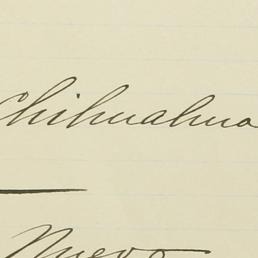 Chihuahua
Nuevo